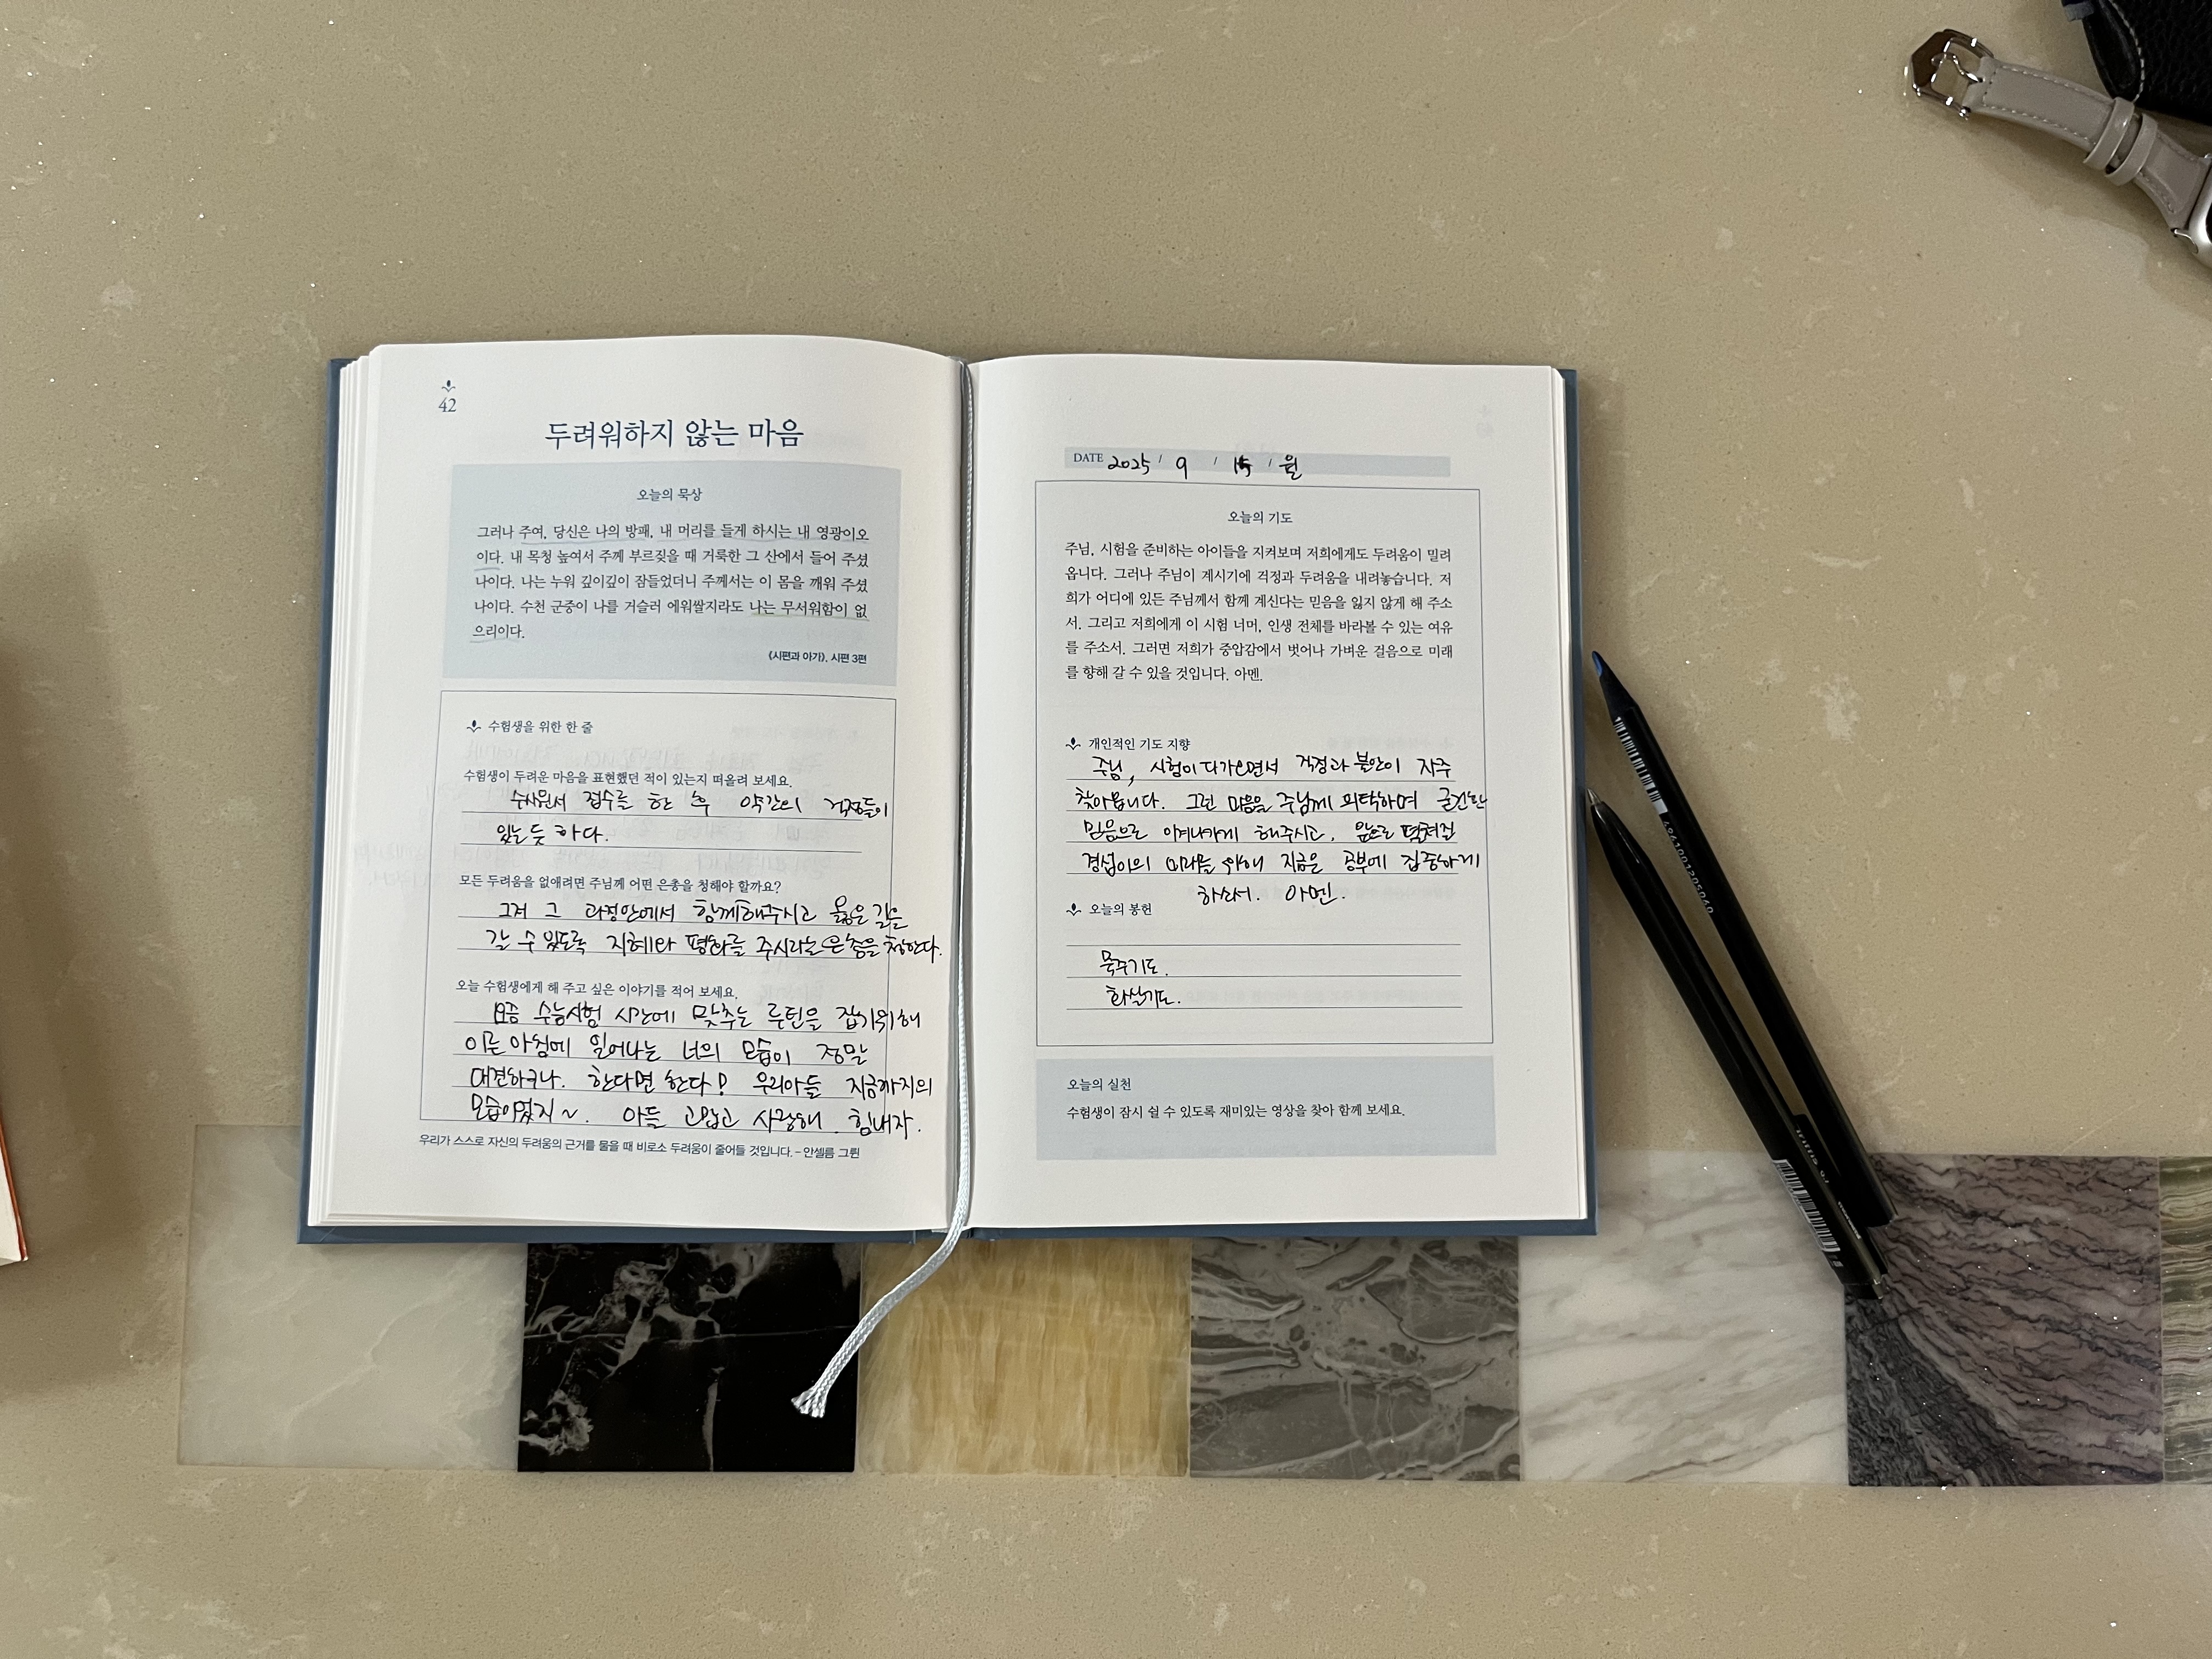 42
두려워하지 않는 마음
오늘의 묵상
그러나 주여, 당신은 나의 방패, 내 머리를 들게 하시는 내 영광이오
이다. 내 목청 높여서 주께 부르짖을 때 거룩한 그 산에서 들어 주셨
나이다. 나는 누워 깊이깊이 잠들었더니 주께서는 이 몸을 깨워 주셨
나이다. 수천 군중이 나를 거슬러 에워쌀지라도 나는 무서워함이 없
으리이다.
《시편과 아가》, 시편 3편
수험생을 위한 한 줄
수험생이 두려운 마음을 표현했던 적이 있는지 떠올려 보세요.
수시원서 접수를 한 후 약간의 걱정들이
있는 듯 하다.
모든 두려움을 없애려면 주님께 어떤 은총을 청해야 할까요?
그저 그 과정안에서 함께해주시고 옳은 길을
갈 수 있도록 지혜와 평화를 주시라는 은총을 청한다.
오늘 수험생에게 해 주고 싶은 이야기를 적어 보세요.
요즘 수능시험 시간에 맞추는 루틴을 잡기위해
이른 아침에 일어나는 너의 모습이 정말
대견하구나. 한다면 한다! 우리아들 지금까지의
모습이었지~. 아들 고맙고 사랑해. 힘내자.
우리가 스스로 자신의 두려움의 근거를 물을 때 비로소 두려움이 줄어들 것입니다. – 안셀름 그륀
DATE 2025 / 9 / 15 / 월
오늘의 기도
주님, 시험을 준비하는 아이들을 지켜보며 저희에게도 두려움이 밀려
옵니다. 그러나 주님이 계시기에 걱정과 두려움을 내려놓습니다. 저
희가 어디에 있든 주님께서 함께 계신다는 믿음을 잃지 않게 해 주소
서. 그리고 저희에게 이 시험 너머, 인생 전체를 바라볼 수 있는 여유
를 주소서. 그러면 저희가 중압감에서 벗어나 가벼운 걸음으로 미래
를 향해 갈 수 있을 것입니다. 아멘.
개인적인 기도 지향
주님, 시험이 다가오면서 걱정과 불안이 자주
찾아옵니다. 그런 마음을 주님께 의탁하며 굳건한
믿음으로 이겨나가게 해주시고, 앞으로 펼쳐질
경섭이의 미래를 위해 지금은 공부에 집중하게
하소서. 아멘.
오늘의 봉헌
묵주기도.
화살기도.
오늘의 실천
수험생이 잠시 쉴 수 있도록 재미있는 영상을 찾아 함께 보세요.